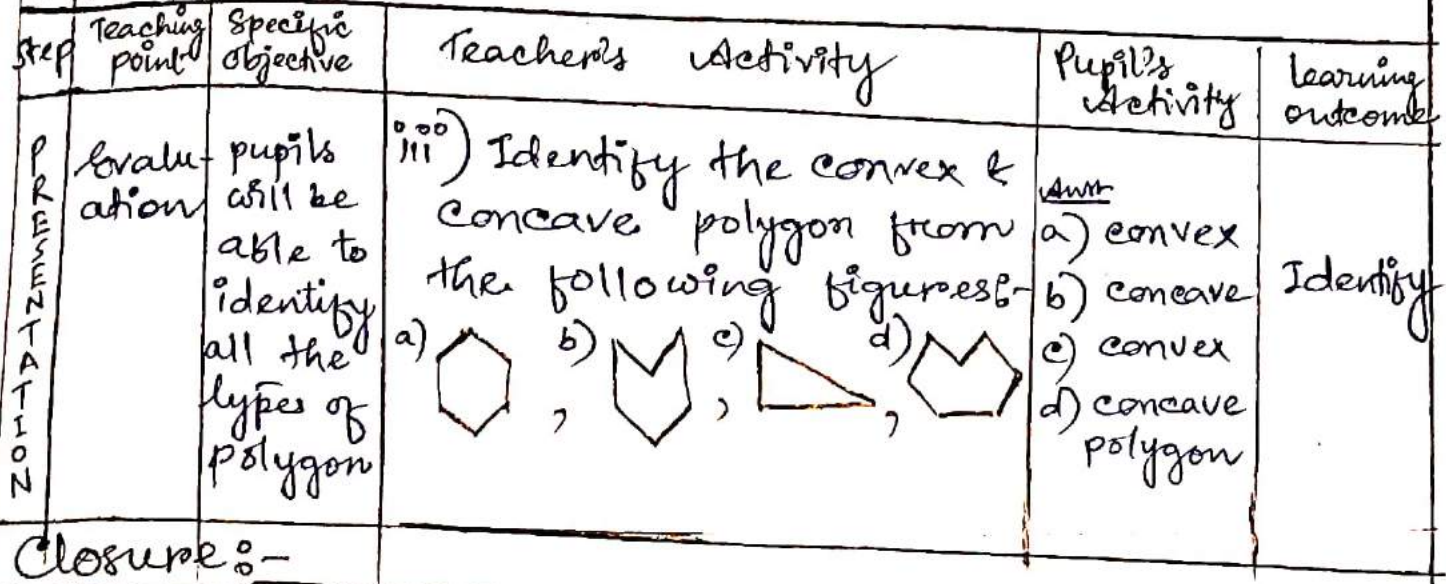 Step
Teaching
point
Specific
Objective
Teacher's Activity
Pupil's
Activity
Learning
outcome
PRESENTATION
Evalu-
ation
pupils
will be
able to
identify
all the
types of
polygon
iii) Identify the convex &
concave polygon from
the following figures:-
a) , b) , c) , d)
Ans
a) convex
b) concave
c) convex
d) concave
polygon
Identify
Closure:-